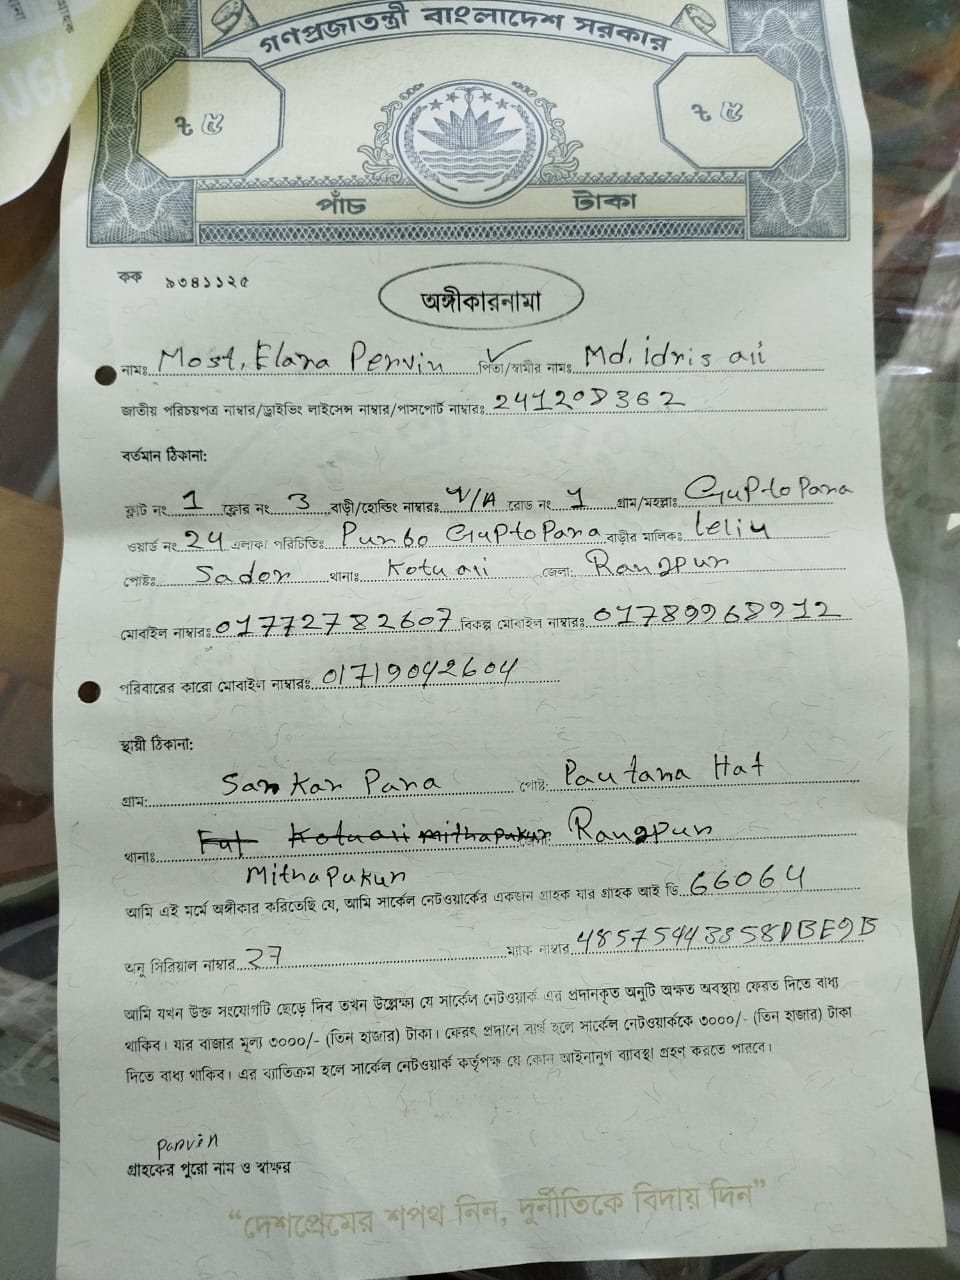 গণপ্রজাতন্ত্রী বাংলাদেশ সরকার
৳ ৫ ৳ ৫
পাঁচ টাকা
কক ৯৩৪১১২৫
অঙ্গীকারনামা
নামঃ Most. Elara Pervin পিতা/স্বামীর নামঃ Md. idris ali
জাতীয় পরিচয়পত্র নাম্বার/ড্রাইভিং লাইসেন্স নাম্বার/পাসপোর্ট নাম্বারঃ 241208362
বর্তমান ঠিকানা:
ফ্লাট নং 1 ফ্লোর নং 3 বাড়ী/হোল্ডিং নাম্বারঃ N/A রোড নং 1 গ্রাম/মহল্লাঃ GuptoPara
ওয়ার্ড নং 24 এলাকা পরিচিতিঃ Purbo GuptoPara বাড়ীর মালিকঃ
পোষ্টঃ Sador থানাঃ Kotuali জেলা: Rangpur
মোবাইল নাম্বারঃ 01772782607 বিকল্প মোবাইল নাম্বারঃ 01789968912
পরিবারের কারো মোবাইল নাম্বারঃ 01719042604
স্থায়ী ঠিকানা:
গ্রাম: Sankar Para পোষ্ট: Pautana Hat
থানাঃ Kotuali Mithapukur Rangpur
Mithapukur
আমি এই মর্মে অঙ্গীকার করিতেছি যে, আমি সার্কেল নেটওয়ার্কের একজন গ্রাহক যার গ্রাহক আই ডি 66064
অনু সিরিয়াল নাম্বার 27 ম্যাক নাম্বার
আমি যখন উক্ত সংযোগটি ছেড়ে দিব তখন উল্লেক্ষ্য যে সার্কেল নেটওয়ার্ক এর প্রদানকৃত অনুটি অক্ষত অবস্থায় ফেরত দিতে বাধ্য
থাকিব। যার বাজার মূল্য ৩০০০/- (তিন হাজার) টাকা। ফেরৎ প্রদানে ব্যর্থ হলে সার্কেল নেটওয়ার্ককে ৩০০০/- (তিন হাজার) টাকা
দিতে বাধ্য থাকিব। এর ব্যতিক্রম হলে সার্কেল নেটওয়ার্ক কর্তৃপক্ষ যে কোন আইনানুগ ব্যাবস্থা গ্রহণ করতে পারবে।
parvin
গ্রাহকের পুরো নাম ও স্বাক্ষর
“দেশপ্রেমের শপথ নিন, দুর্নীতিকে বিদায় দিন”